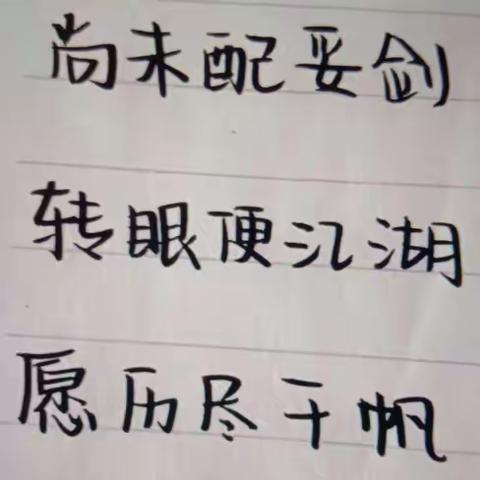 尚未配妥剑
转眼便江湖
愿历尽千帆